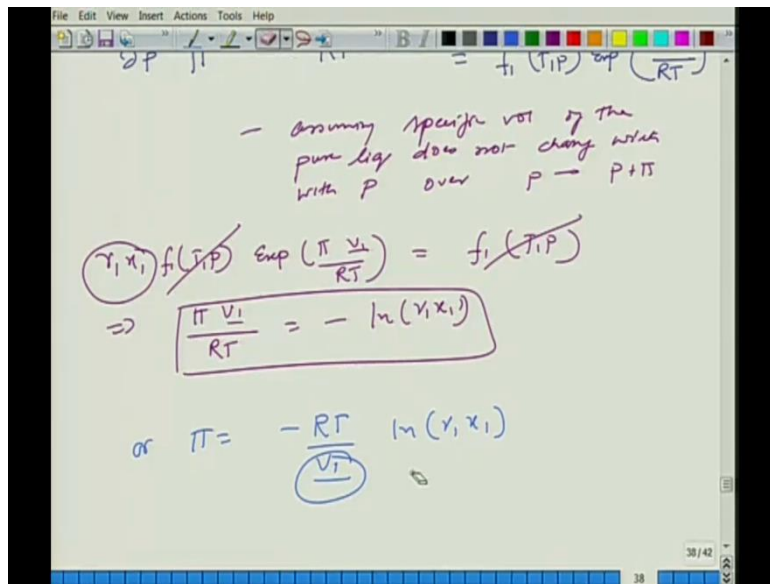 File Edit View Insert Actions Tools Help
B I
∂P RT = f₁ (T₁P) exp ( / RT )
- assuming specific vol of the
pure liq does not chang with
with P over P → P+Π
γ₁x₁ f₁(T₁P) Exp (Π V₁ / RT) = f₁ (T₁P)
⇒ Π V₁ / RT = - ln(γ₁x₁)
or Π = - RT / V₁ ln(γ₁x₁)
38/42
38